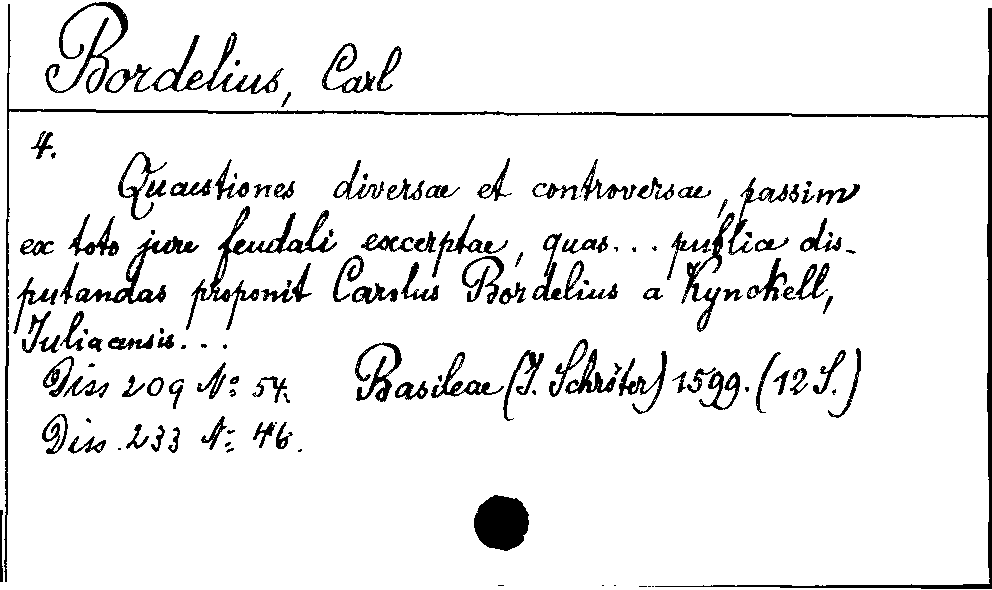 Bordelius, Carl
4.
Quaestiones diversae et controversae, passim
ex toto jure feudali excerptae, quas... publice dis-
putandas proponit Carolus Bordelius a Kynckell,
Juliacensis...
Diss 209 No 54. Basileae (J. Schröter) 1599. (12 S.)
Diss. 233 No 46.